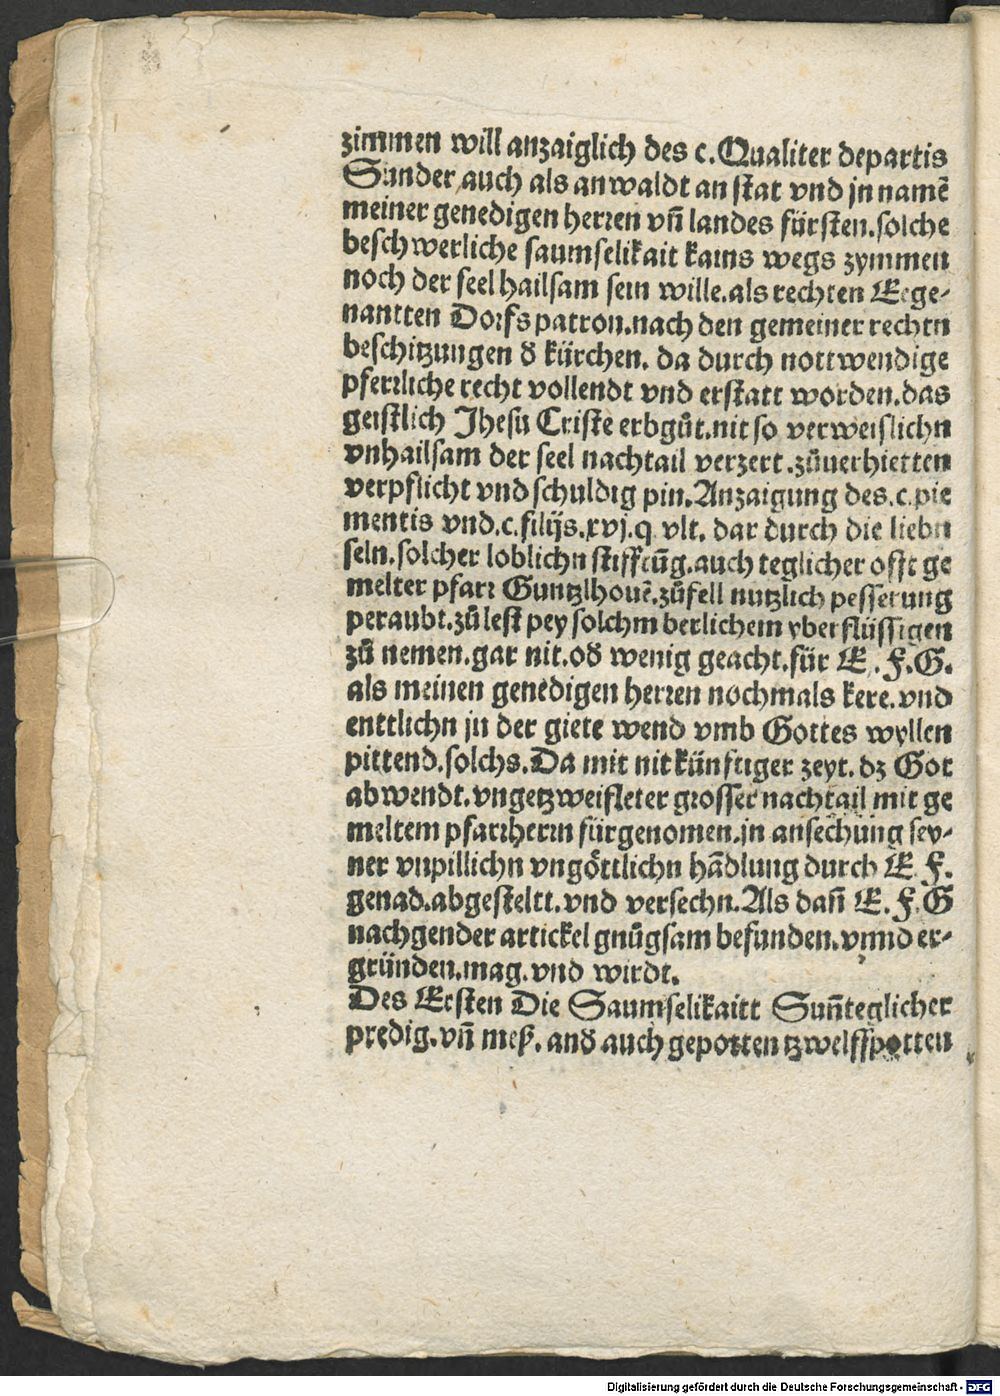 zimmen will anzaiglich des c. Qualiter departis
Sunder auch als anwaldt an stat vnd jn namē
meiner genedigen herren vñ landes fürsten. solche
beschwerliche saumselikait kains wegs zymmen
noch der seel hailsam sein wille. als rechten Eege⸗
nantten Dorfs patron. nach den gemeiner rechtn
beschitzungen ð kürchen. da durch nottwendige
pferrliche recht vollendt vnd erstatt worden. das
geistlich Jhesu Criste erbgůt. nit so verweislichn
vnhailsam der seel nachtail verzert. zůuerhietten
verpflicht vnd schuldig pin. Anzaigung des. c. pie
mentis vnd. c. filijs. xvj. q vlt. dar durch die liebn
seln. solcher loblichn stifftūg. auch teglicher offt ge
melter pfarr Guntzlhouē. zůfell nutzlich pesserung
peraubt. zů lest pey solchm berlichem yberflüssigen
zů nemen. gar nit. oð wenig geacht. für E. F. G.
als meinen genedigen herren nochmals kere. vnd
enttlichn jn der giete wend vmb Gottes wyllen
pittend. solchs. Da mit nit künftiger zeyt. dz Got
abwendt. vngetzweifleter grosser nachtail mit ge
meltem pfarrherrn fürgenomen. jn ansechung sey⸗
ner vnpillichn vngöttlichn hādlung durch E. F.
genad. abgesteltt. vnd versechn. Als dañ E. F. G
nachgender artickel gnůgsam befunden. vnnd er⸗
gründen. mag. vnd wirdt.
Des Ersten Die Saumselikaitt Suñteglicher
predig. vñ meß. anð auch gepotten tzwelfspotten
Digitalisierung gefördert durch die Deutsche Forschungsgemeinschaft - DFG